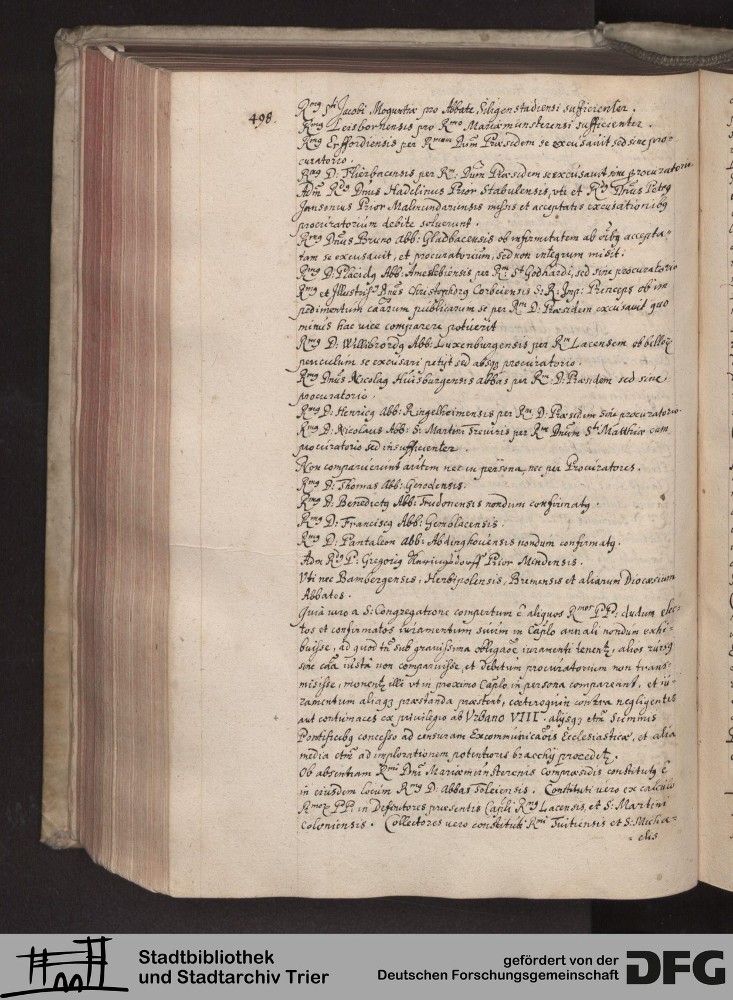 498.
Rmg sti Jacobi Moguntiæ pro Abbate Siligenstadiensi sufficienter.
Rmg Leisbornensis pro Rmo Mariæmunsterensi sufficienter.
Rmg Erffordiensis per Rmum Dnum Præsidem se excusavit sed sine pro-
curatorio.
Rmg D: per Rm: Dnum Præsidem se excusavit sine procuratorio.
Adm Rdg Dnus Hadelinus Prior Stabulensis, vti et Rdg Dnus Petrg
Jansenius Prior Malmundariensis missis et acceptatis excusationibg
procuratorium debite solverunt.
Rmg Dnus Bruno abb: Gladbacensis ob infirmitatem ab oibg accepta-
tam se excusavit, et procuratorium, sed non integrum misit.
Rmg D: Placidg Abb: per Rm: St Godhardi, sed sine procuratorio
Rmg et Illustrisg Dnus Christophorg Corbeiensis S: R: Imp: Princeps ob im
pedimentum caarum publicarum se per Rm D: Præsidem excusavit quo
minus hac vice comparere potuerit
Rmg D: Willibrordg Abb: Luxenburgensis per Rm Lacensem ob belloru
periculum se excusari petijt sed absqg procuratorio.
Rmg Dnus Nicolag Huisburgensis abbas per Rm: D: Præsidem sed sine
procuratorio.
Rmg D: Henricg abb: Ringelheimensis per Rm: D: Præsidem sine procuratorio.
Rmg D: Nicolaus Abb: S: Martini Treviris per Rm Dnum Sti Matthiæ cum
procuratorio sed insufficienter.
Non comparuerunt autem nec in persona, nec per Procuratores.
Rmg D: Thomas Abb: Gerodensis.
Rmg D: Benedictg Abb: Trudonensis nondum confirmatg.
Rmg D: Franciscg Abb: Gemblacensis.
Rmg D: Pantaleon abb: Abdinghovensis nondum confirmatg.
Adm Rdg P: Gregorig Prior Mindensis.
Vti nec Bambergensis, Herbipolensis, Bremensis et aliarum Diocæsium
Abbates.
Quia vero a S: Congregatione compertum e aliquos Rmor PP: dudum elec-
tos et confirmatos iuramentum suum in Caplo annali nondum exhi-
buisse, ad quod tn sub gravissima obligaoe iuramenti tenentg, alios rursg
sine caa iusta non comparuisse, et debitum procuratorium non trans-
misisse, monentg illi vt in proximo Caplo in persona compareant, et iu-
ramentum aliaqg præstanda præstent, cæteroquin contra negligentes
aut contumaces ex privilegio ab Vrbano VIII alijsqg etm summis
Pontificibg concesso ad censuram Excommunicaois Ecclesiasticæ, et alia
media etm ad implorationem potentioris brachij procedetg.
Ob absentiam Rmi Dni Mariæmunsterensis Compræsidis constitutg e
in eiusdem locum Rmg D: abbas Tuleiensis. Constituti vero ex calculo
Rmor PP: in Definitores præsentis Capli Rmg Lacensis, et S: Martini
Coloniensis. Collectores vero constituti Rmi Tuitiensis et S: Micha-
-elis
Stadtbibliothek
und Stadtarchiv Trier
gefördert von der
Deutschen Forschungsgemeinschaft
DFG